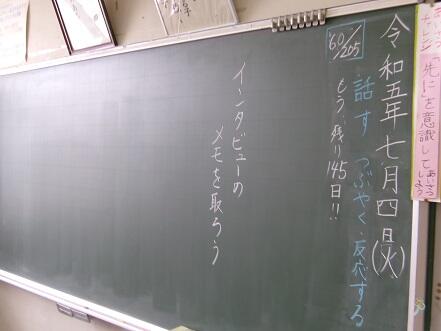 「先に」を意識して
あいさつしよう
令和五年 七月四日(火)
話す つぶやく 反応する
60/205
もう、残り145日!!
インタビューの
メモを取ろう